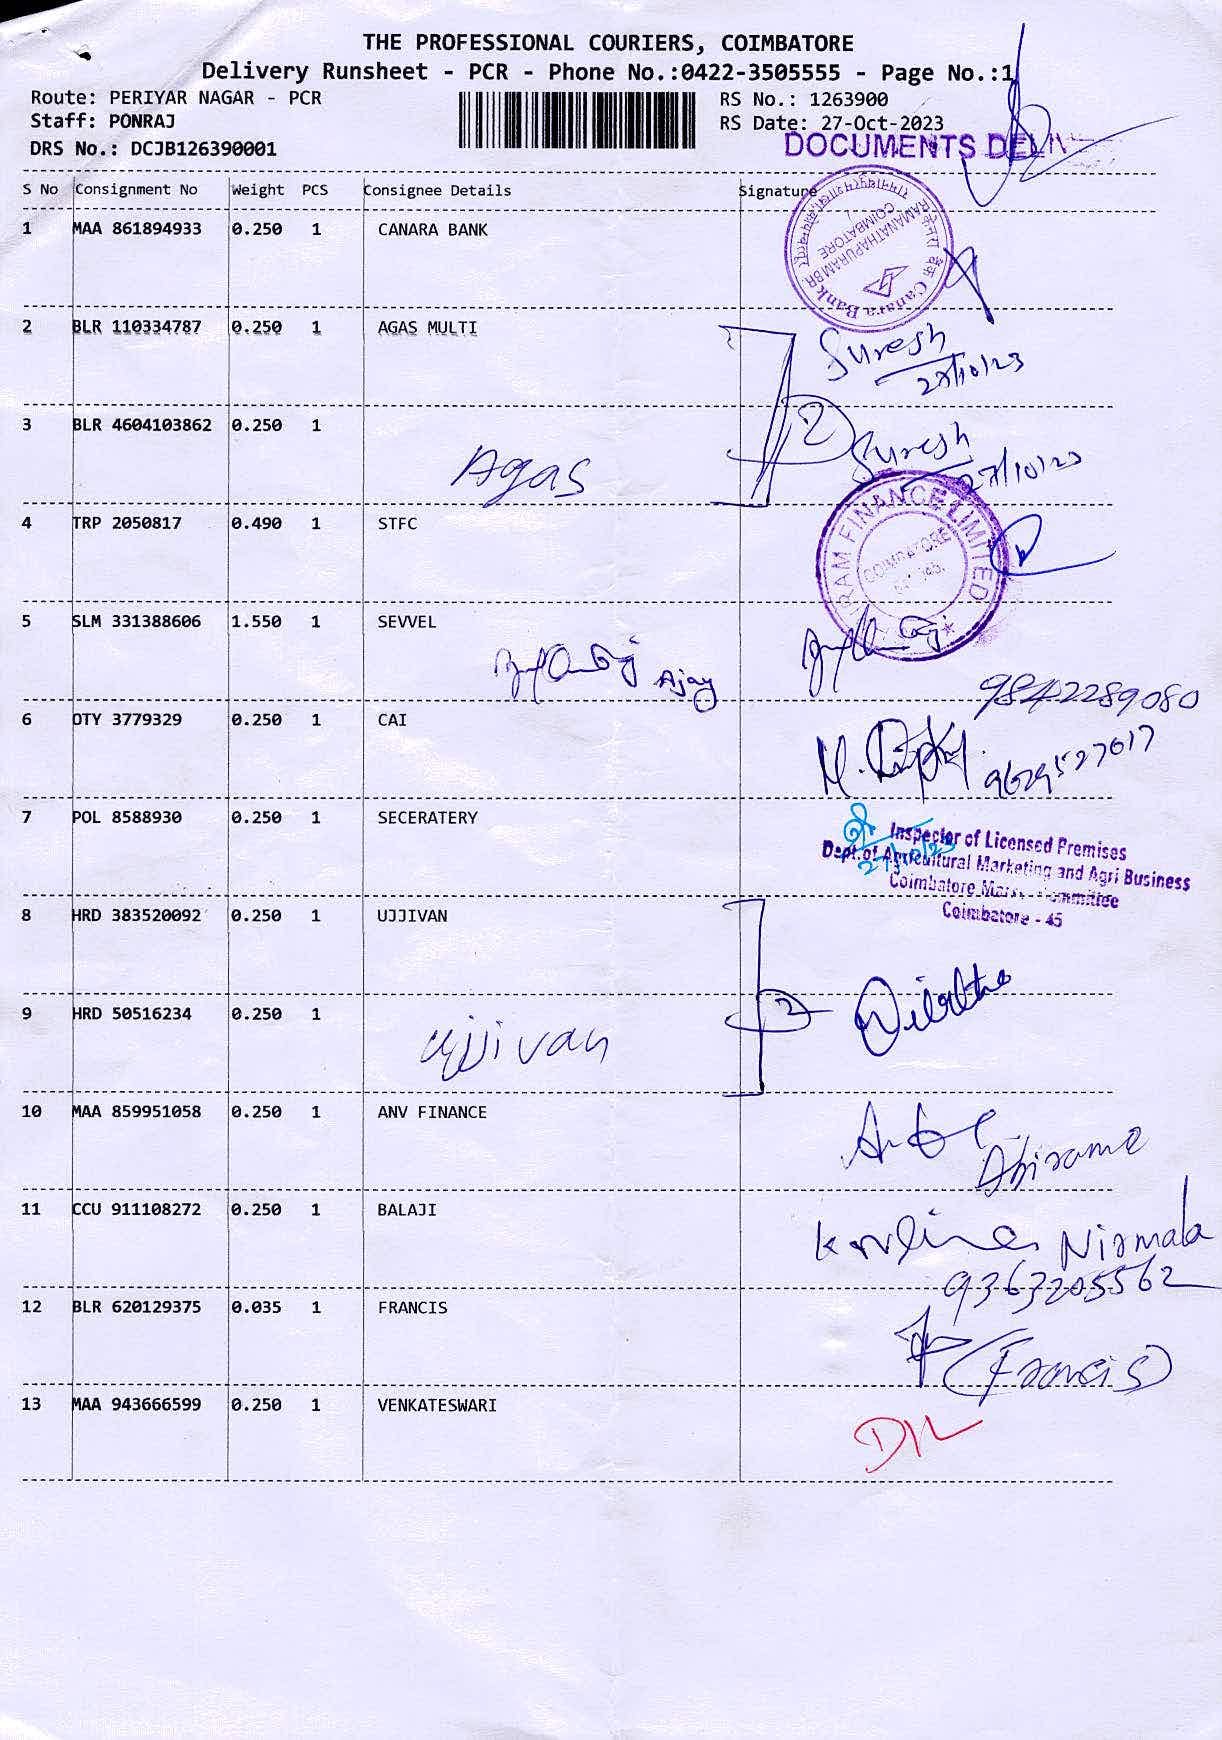 THE PROFESSIONAL COURIERS, COIMBATORE
Delivery Runsheet - PCR - Phone No.:0422-3505555 - Page No.:1
Route: PERIYAR NAGAR - PCR
RS No.: 1263900
Staff: PONRAJ
RS Date: 27-Oct-2023
DRS No.: DCJB126390001
DOCUMENTS
S No Consignment No Weight PCS Consignee Details Signature
1 MAA 861894933 0.250 1 CANARA BANK
RAMANATHAPURAM BR.
COIMBATORE
Canara Bank
2 BLR 110334787 0.250 1 AGAS MULTI
Suresh
27/10/23
3 BLR 4604103862 0.250 1
Agas
2
Suresh
27/10/23
4 TRP 2050817 0.490 1 STFC
FINANCE LIMITED
COIMBATORE
5 SLM 331388606 1.550 1 SEVVEL
Ajay
9842289080
6 OTY 3779329 0.250 1 CAI
9629527617
7 POL 8588930 0.250 1 SECERATERY
27/10/23
Inspector of Licensed Premises
Dept.of Agricultural Marketing and Agri Business
Coimbatore
Coimbatore - 45
8 HRD 383520092 0.250 1 UJJIVAN
9 HRD 50516234 0.250 1
Ujjivan
2
10 MAA 859951058 0.250 1 ANV FINANCE
11 CCU 911108272 0.250 1 BALAJI
Nirmala
9363205562
12 BLR 620129375 0.035 1 FRANCIS
(Francis)
13 MAA 943666599 0.250 1 VENKATESWARI
D/L